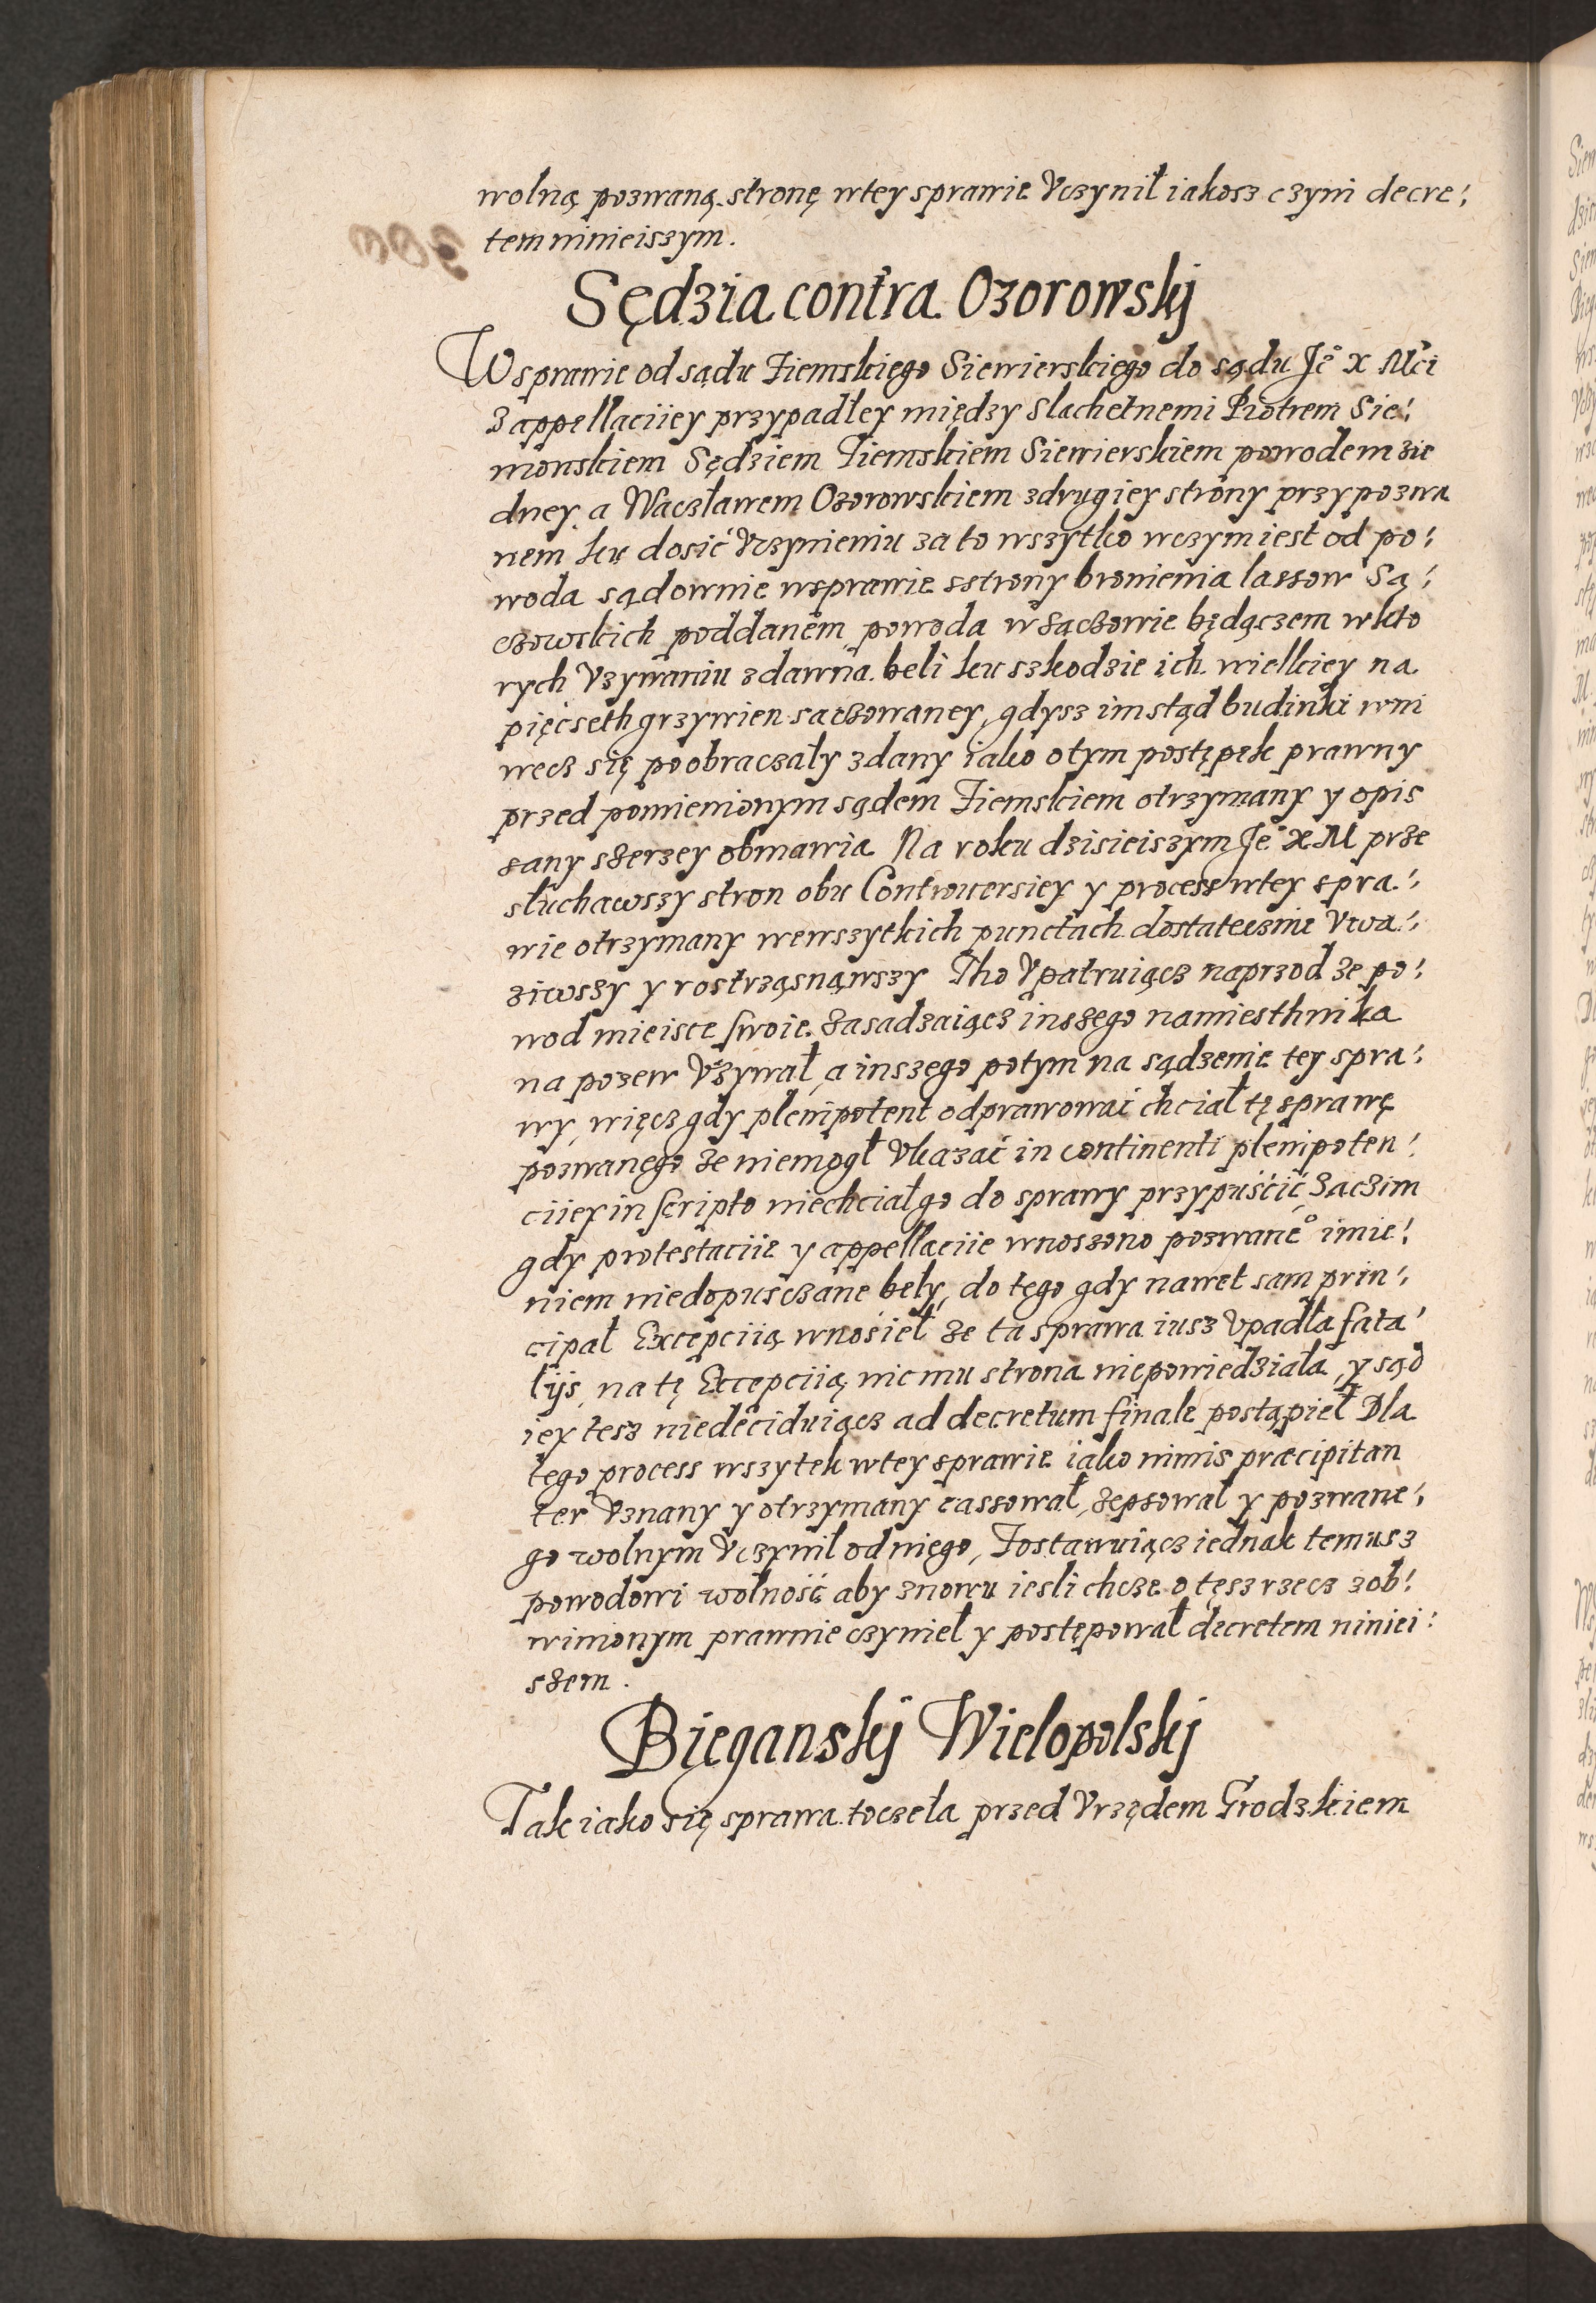 wolną pozwaną stronę wtey sprawie Vczynił iakosz czyni decre:
tem ninieiszym.
Sędzia contra Ozorowskj
W sprawie od sądu Ziemskiego Siewierskiego do sądu Je° x Mći
Z appellaciiey przypadłey między slachetnemi Piotrem Sie:
monskiem Sędziem Ziemskiem Siewierskiem powodem zie
dney, a Wacżławem Ozorowskiem zdrugiey strony przypozwa
nem ku dosić Vczynieniu za to wszytko wczym iest od po:
woda sądownie wsprawie sstrony bronienia lassow Są:
czowskich poddanem powoda w Sączowie będączem wkto
rych Vzywaniu zdawna beli ku szkodzie ich wielkiey na
pięćseth grzywien saczowaney, gdysz im stąd budinki wni
wecz się poobraczały zdany iako otym postępek prawny
przed pomienionym sądem Ziemskiem otrzymany y opis
sany szerzey obmawia Na roku dzisieiszym Je° x M prze
słuchawszy stron obu Controwersiey y process wtey spra:
wie otrzymany wewszytkich punctach dostatecznie Vwa:
ziwszy y rostrząsnąwszy Tho Vpatruiącz naprzod ze po:
wod mieisce swoie zasadzaiącz inszego namiesthnika
na pozew Vżywał, a inszego potym na sądzenie tey spra:
wy, więcz gdy plenipotent odprawować chciał tę sprawę
pozwanego ze niemogł Vkazać in continenti plenipoten:
ciiey in scripto niechciał go do sprawy przypuścić, zaczim
gdy protestaciie y appellaciie wnoszono pozwane° imie:
niem niedopusczane beły, do tego gdy nawet sam prin:
cipał Excepciią wnosieł ze ta sprawa iusz Vpadła fata:
lijs, na tę Excepciią nic mu strona niepowiedziała, y sąd
iey tesz niedeciduiącz ad decretum finale postąpieł Dla
tego process wszytek wtey sprawie iako nimis præcipitan
ter Vznany y otrzymany cassował, zepsował y pozwane:
go wolnym Vczynił odniego, Zostawuiącz iednak temusz
powodowi wolność aby znowu iesli chcze o tęsz rzecz zob:
winionym prawnie czynieł y postępował decretem niniei:
szem.
Bięganskj Wielopolskj
Tak iako się sprawa toczeła przed Vrzędem Grodzkiem